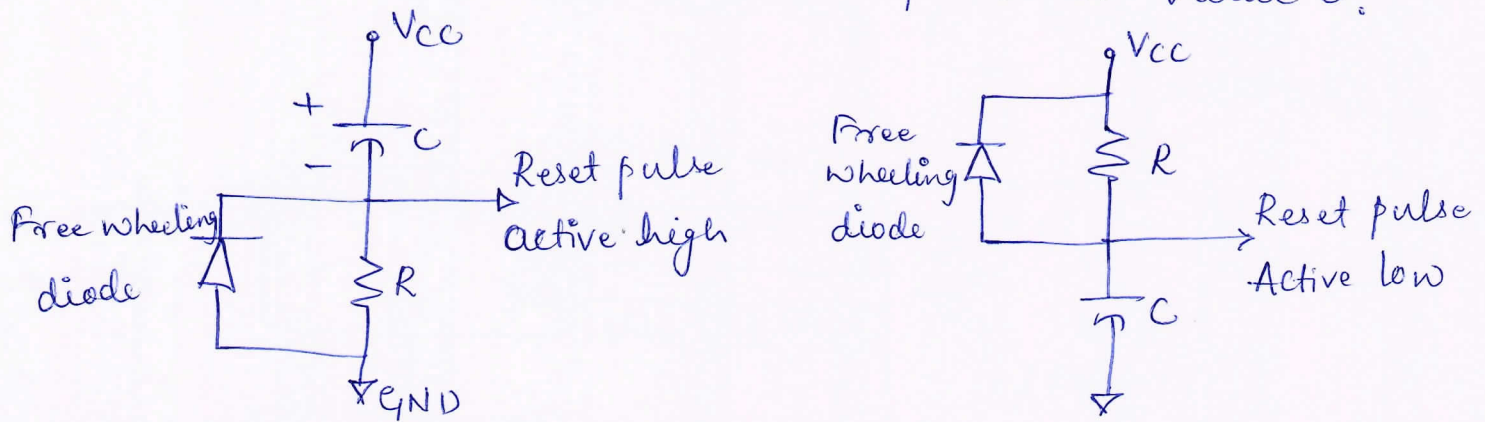 value s.
Vcc
+
C
-
Reset pulse
active high
Free wheeling
diode
R
GND
Vcc
Free
wheeling
diode
R
Reset pulse
Active low
C